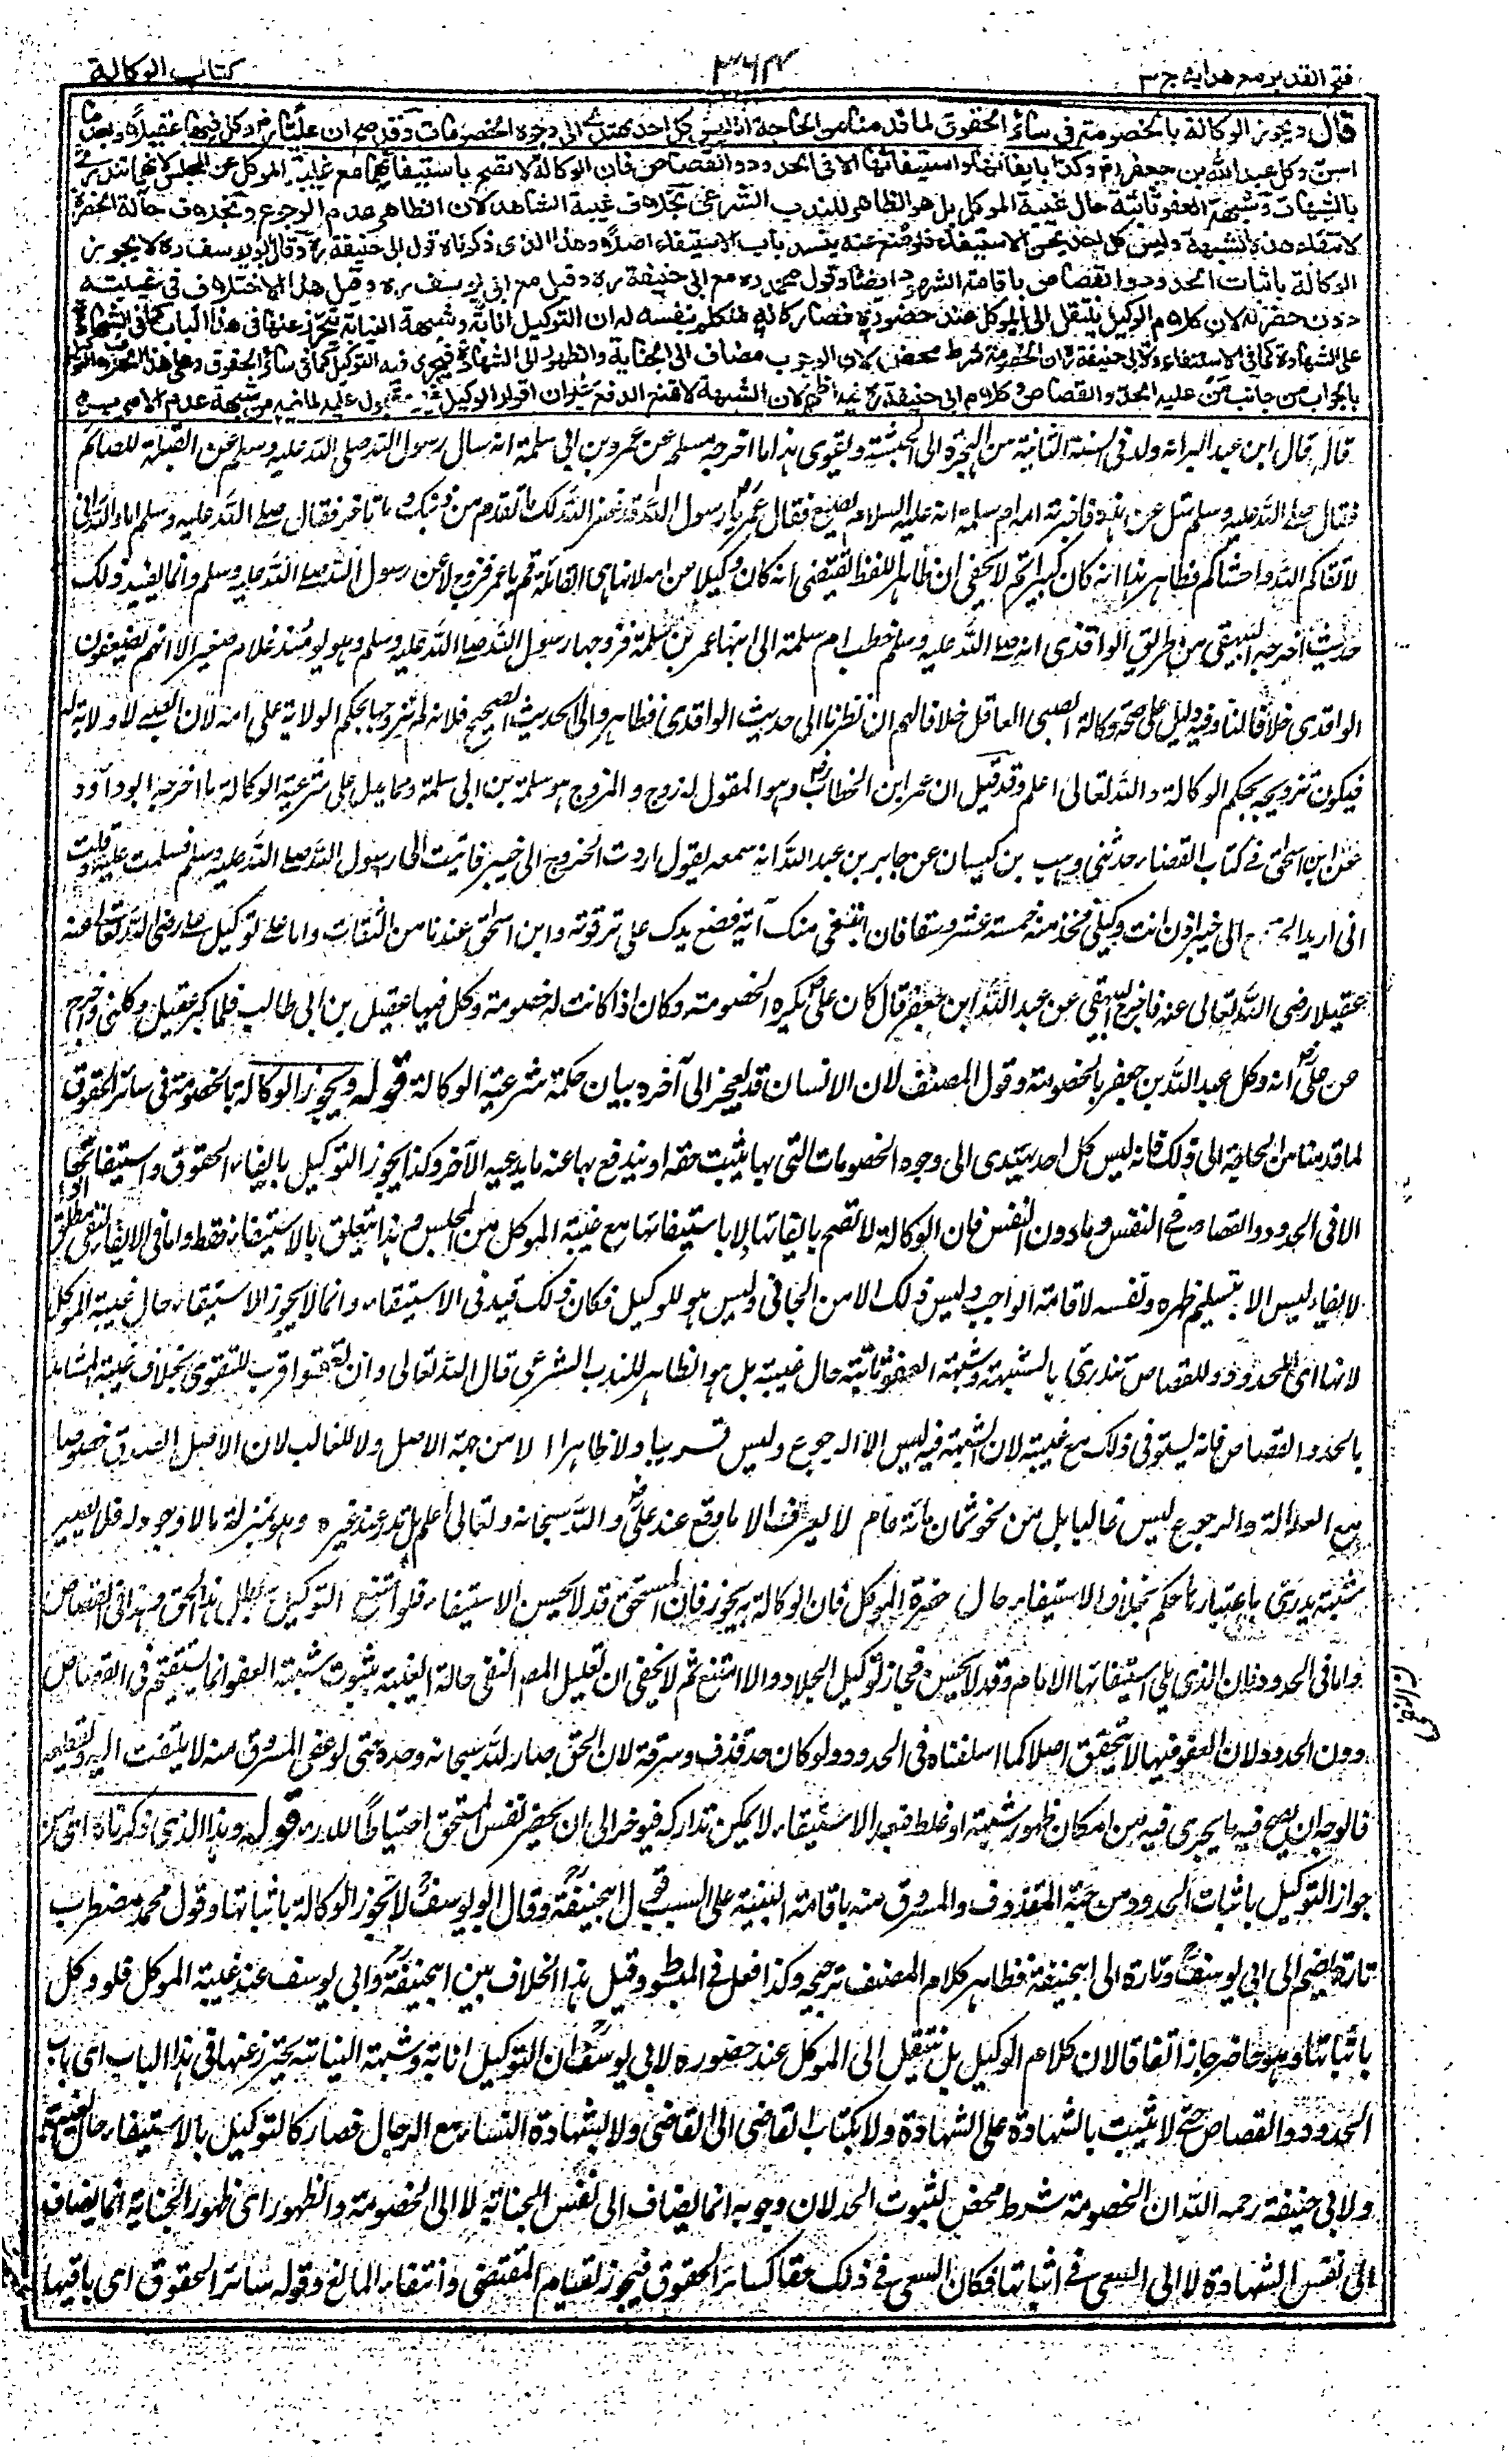 فتح القدير مع هدايه ج ٣
٣٦٤
كتاب الوكالة
قال ويجوز الوكالة بالخصومة في سائر الحقوق لما قدمنا من الحاجة اذ ليس كل احد يهتدي الى وجوه الخصومات وقد صح ان عليا رض وكل فيها عقيلا وبعد ما
اسن وكل عبد الله بن جعفر رض وكذا بايفائها واستيفائها الا في الحدود والقصاص فان الوكالة لا تصح باستيفائها مع غيبة الموكل عن المجلس لانها تندرئ
بالشبهات وشبهة العفو ثابتة حال غيبة الموكل بل هو الظاهر للندب الشرعي بخلاف غيبة الشاهد لان الظاهر عدم الرجوع وبخلاف حالة الحضرة
لانتفاء هذه الشبهة وليس كل احد يحسن الاستيفاء فلو منع عنه ينسد باب الاستيفاء اصلا وهذا الذي ذكرناه قول ابي حنيفة ره وقال ابو يوسف ره لا يجوز
الوكالة باثبات الحدود والقصاص باقامة الشهود ايضا وقول محمد ره مع ابي حنيفة ره وقيل مع ابي يوسف ره وقيل هذا الاختلاف في غيبته
دون حضرته لان كلام الوكيل ينتقل الى الموكل عند حضوره فصار كانه متكلم بنفسه له ان التوكيل انابة وشبهة النيابة يتحرز عنها في هذا الباب كما في الشهادة
على الشهادة وكما في الاستيفاء ولابي حنيفة ره ان الخصومة شرط محض لان الوجوب مضاف الى الجناية والظهور الى الشهادة فيجري فيه التوكيل كما في سائر الحقوق وعلى هذا الخلاف التوكيل
بالجواب من جانب من عليه الحد والقصاص وكلام ابي حنيفة ره فيه اظهر لان الشبهة لا تمنع الدفع غير ان اقرار الوكيل غير مقبول عليه لما فيه من شبهة عدم الامر به
قال قال ابن عبد البر انه ولد في السنة الثانية من الهجرة الى الحبشة ويقوي هذا ما اخرجه مسلم عن عمرو بن ابي سلمة انه سال رسول الله صلى الله عليه وسلم عن القبلة للصائم
فقال صلى الله عليه وسلم سل عن هذه فاخبرته امه ام سلمة انه عليه السلام يصنع فقال عمر يا رسول الله قد غفر الله لك ما تقدم من ذنبك وما تاخر فقال صلى الله عليه وسلم اما والله اني
لاتقاكم لله واخشاكم فظاهر هذا انه كان كبيرا ثم لا يخفى ان ظاهر اللفظ يقتضي انه كان وكيلا من امه لانها هي القائلة قم يا عمر فزوج لا عن رسول الله صلى الله عليه وسلم وانما يفيد ذلك
حديث اخرجه البيهقي من طريق الواقدي انه صلى الله عليه وسلم خطب ام سلمة الى ابنها عمر بن سلمة فزوجها رسول الله صلى الله عليه وسلم وهو يومئذ غلام صغير الا انهم يضعفون
الواقدي خلافا لنا وفيه دليل على صحة وكالة الصبي العاقل خلافا لهم ان نظرنا الى حديث الواقدي فظاهر والى الحديث الصحيح فلانه لم يتزوجها بحكم الولاية على امه لان الصبي لا ولاية له
فيكون تزويجه بحكم الوكالة والله تعالى اعلم وقد قيل ان عمر ابن الخطاب رض وهو المقول له زوج والمزوج هو سلمة بن ابي سلمة ومما يدل على شرعية الوكالة ما اخرجه ابو داود
عن ابن اسحق في كتاب القضاء حدثني وهب بن كيسان عن جابر بن عبد الله انه سمعه يقول اردت الخروج الى خيبر فاتيت الى رسول الله صلى الله عليه وسلم فسلمت عليه وقلت
اني اريد الخروج الى خيبر اذن انت وكيلي فخذ منه خمسة عشر وسقا فان ابتغى منك آية فضع يدك على ترقوته وابن اسحق عندنا من الثقات واما على توكيل علي رضي الله تعالى عنه
عقيلا رضي الله تعالى عنه فاخرج البيهقي عن عبد الله ابن جعفر قال كان علي رض يكره الخصومة وكان اذا كانت له خصومة وكل فيها عقيل بن ابي طالب فلما كبر عقيل وكلني واخرج
عن علي رض انه وكل عبد الله بن جعفر بالخصومة وقول المصنف لان الانسان قد يعجز الى آخره بيان حكمة شرعية الوكالة قوله ويجوز الوكالة بالخصومة في سائر الحقوق
لما قدمنا من الحاجة الى ذلك فانه ليس كل احد يهتدي الى وجوه الخصومات التي بها يثبت حقه او يندفع بها عنه ما يدعيه الآخر وكذا يجوز التوكيل بايفاء الحقوق واستيفائها
الا في الحدود والقصاص في النفس وما دون النفس فان الوكالة لا تصح بايفائها ولا باستيفائها مع غيبة الموكل من المجلس وهذا يتعلق بالاستيفاء فقط واما في الايفاء فتنفي مطلقا
لايفاء ليس الا بتسليم ظهره ونفسه لاقامة الواجب وليس ذلك الا من الجاني وليس هو للوكيل فكان ذلك قيد في الاستيفاء وانما لا يجوز الاستيفاء حال غيبة الموكل
لانها اي الحدود وللقصاص تندرئ بالشبهة وشبهة العفو ثابتة حال غيبته بل هو الظاهر للندب الشرعي قال الله تعالى وان تعفوا اقرب للتقوى بخلاف غيبة الشاهد
بالحد والقصاص فانه يستوفى ذلك مع غيبته لان الشبهة فيه ليس الا الرجوع وليس قريبا ولا ظاهرا لا من جهة الاصل ولا للغالب لان الاصل الصدق خصوصا
مع العدالة والرجوع ليس غالبا بل من نحو ثمان مائة عام لا يعرف الا ما وقع عند علي رض والله سبحانه وتعالى اعلم هل تدعند غيره وهو بمنزلة ما لا وجود له فلا يعتبر
شبهة يدرئ باعتبارها حكم بخلاف الاستيفاء حال حضرة الموكل فان الوكالة به يجوز فان المستحق قد لا يحسن الاستيفاء فلو امتنع التوكيل به بطل هذا الحق وهذا في القصاص
واما في الحدود فان الذي يلي استيفائها الامام وقد لا يحسن فجاز توكيل الجلاد والا امتنع ثم لا يخفى ان تعليل المص النفي حالة الغيبة بثبوت شبهة العفو انما يستقيم في القصاص
دون الحدود لان العفو فيها لا يتحقق اصلا كما اسلفناه في الحدود ولو كان حد قذف وسرقة لان الحق صار لله سبحانه وحده حتى لو عفى المسروق منه لا يلتفت اليه ويقطعه
فالوجه ان يصح فيه ما يجري فيه من امكان ظهور شبهة او غلط فبعد الاستيفاء لا يمكن تداركه فيؤخر الى ان يحضر نفس المستحق احتياطا للدرء قوله وهذا الذي ذكرناه اي من
جواز التوكيل باثبات الحدود من جهة المقذوف والمسروق منه باقامة البينة على السبب قول ابيحنيفة رح وقال ابو يوسف رح لا يجوز الوكالة باثباتها وقول محمد مضطرب
تارة يضم الى ابي يوسف رح وتارة الى ابيحنيفة فظاهر كلام المصنف ترجيحه وكذا فعل في المبسوط وقيل هذا الخلاف بين ابيحنيفة رح وابي يوسف عند غيبة الموكل فلو وكل
باثباتها وهو حاضر جاز اتفاقا لان كلام الوكيل بل ينتقل الى الموكل عند حضوره لابي يوسف رح ان التوكيل انابة وشبهة النيابة يتحرز عنها في هذا الباب اي باب
الحدود والقصاص حتى لا يثبت بالشهادة على الشهادة ولا بكتاب القاضي الى القاضي ولا بشهادة النساء مع الرجال فصار كالتوكيل بالاستيفاء حال الغيبة
ولابي حنيفة رحمه الله ان الخصومة شرط محض لثبوت الحد لان وجوبه انما يضاف الى نفس الجناية لا الى الخصومة والظهور اي ظهور الجناية انما يضاف
الى نفس الشهادة لا الى السعي في اثباتها فكان السعي في ذلك حقا كسائر الحقوق فيجوز لقيام المقتضي وانتفاء المانع وقوله سائر الحقوق اي باقيها